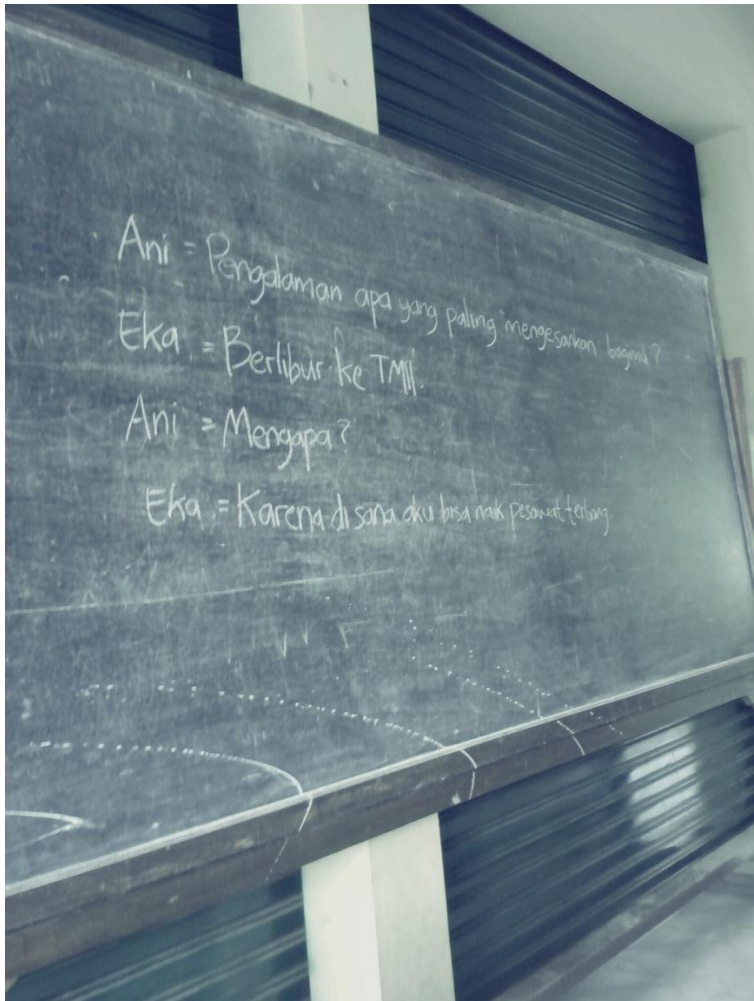 Ani = Pengalaman apa yang paling mengesankan bagimu?
Eka = Berlibur ke TMII.
Ani = Mengapa?
Eka = Karena di sana aku bisa naik pesawat terbang.